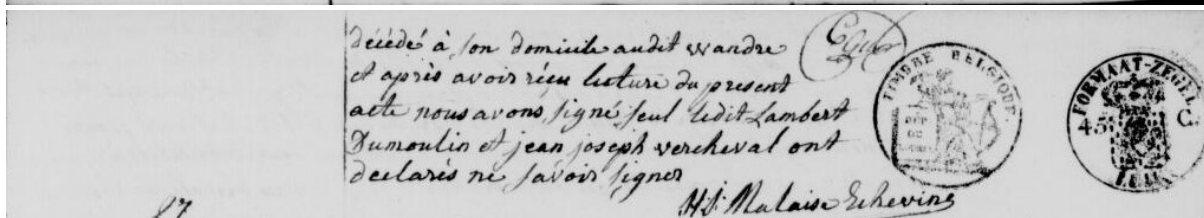 décédé à son domicile audit wandre
et après avoir reçu lecture du present
acte nous avons signé seul ledit Lambert
Dumoulin et jean joseph vercheval ont
declarés ne savoir signer
H. J. Malaise Echevins
87
TIMBRE BELGIQUE
FORMAAT-ZEGEL
45 C.